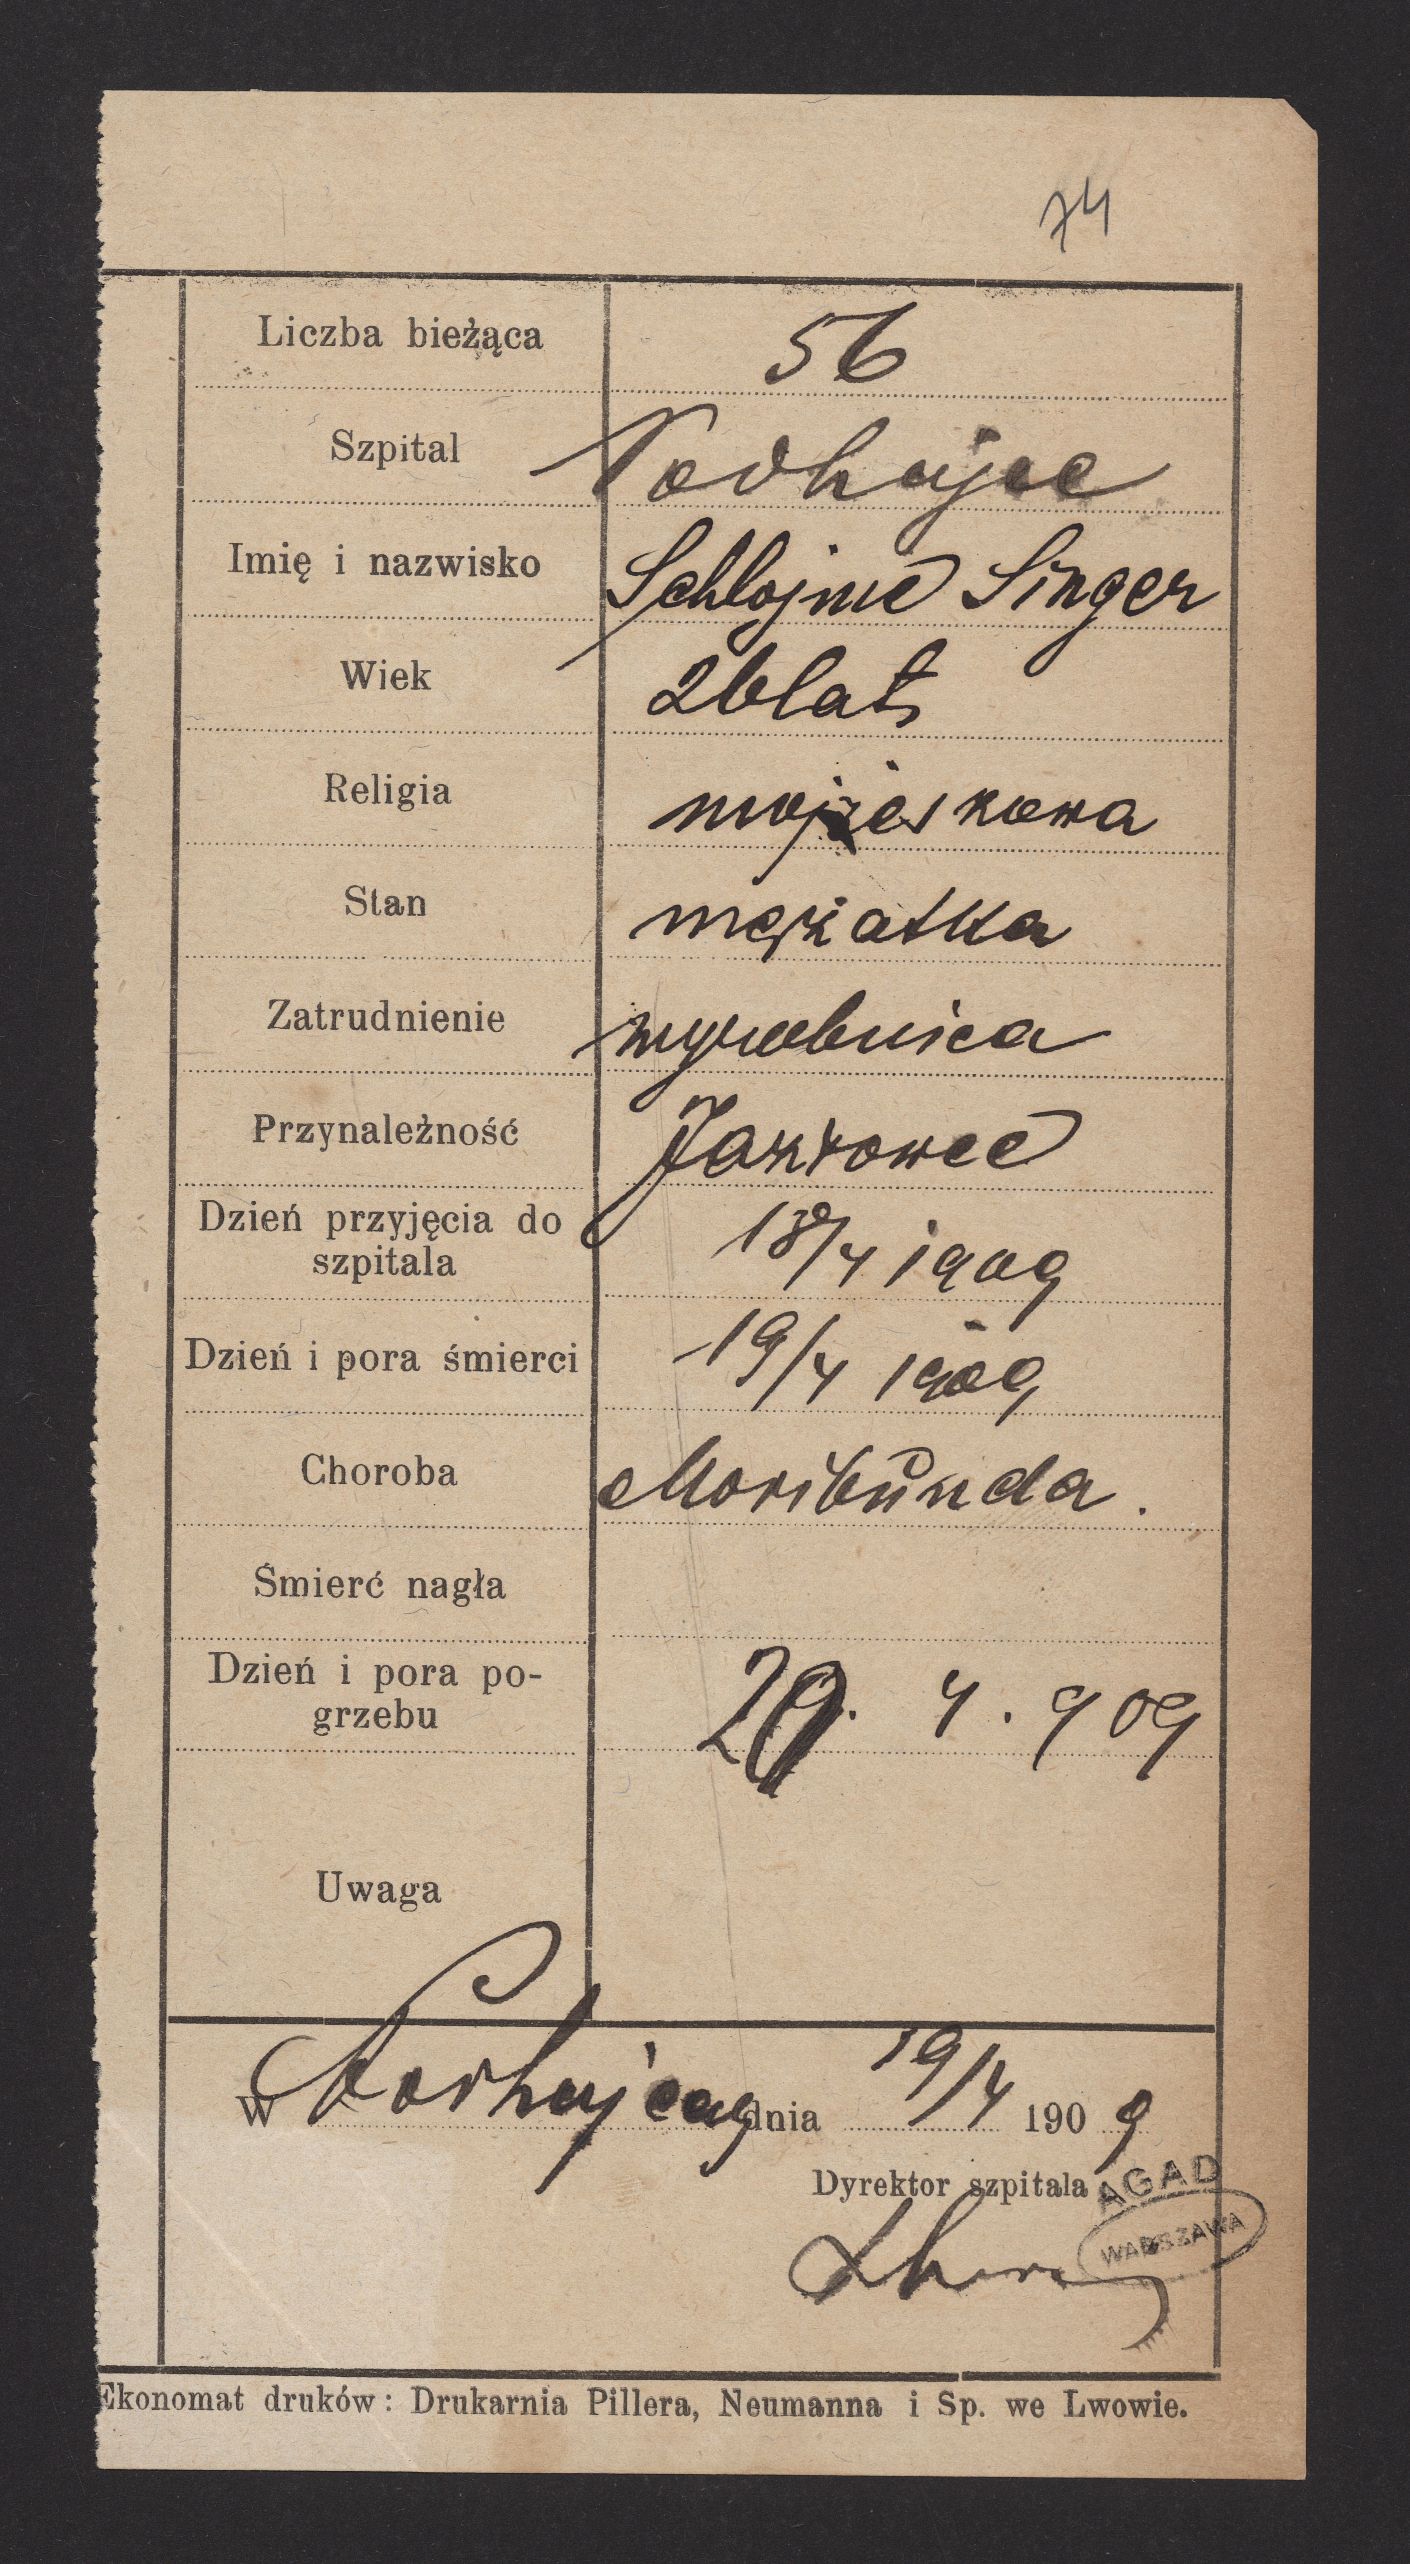 74
Liczba bieżąca 56
Szpital Podhajce
Imię i nazwisko Schlojme Singer
Wiek 26 lat
Religia mojżeskowa
Stan mężatka
Zatrudnienie wyrobnica
Przynależność Jazłowce
Dzień przyjęcia do
szpitala 18/4 1909
Dzień i pora śmierci 19/4 1909
Choroba Moribunda.
Śmierć nagła
Dzień i pora po-
grzebu 20. 4. 909
Uwaga
W Podhajcach dnia 19/4 1909
Dyrektor szpitala
AGAD
WARSZAWA
Ekonomat druków: Drukarnia Pillera, Neumanna i Sp. we Lwowie.